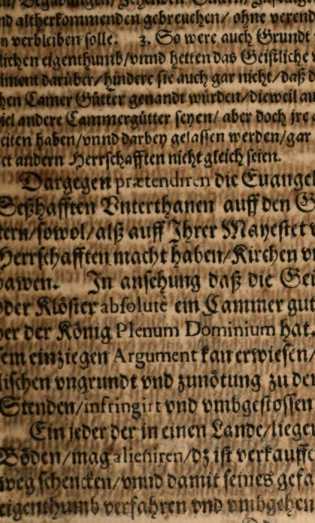 nd altherkommenden gebreuchen/ ohne verend
n verbleiben solle. 3. So were auch Grundt
lichen eigenthumb/vnnd hetten das Geistliche
iment darüber/hindere sie auch gar nicht/daß d
hen Camer Gütter genandt würden/dieweil au
iel andere Cammergütter seyen/ aber doch jre
eiten haben/vnnd darbey gelassen werden/gar
et andern Herrschafften nicht gleich seien.
Dargegen prætendiren die Euangel
Seßhafften Vnterthanen auff den G
tern/sowol/alß auff Ihrer Mayestet v
Herrschafften macht haben/Kirchen v
bawen. In ansehung daß die Gei
oder Klöster absolutè ein Cammer gut
er der König Plenum Dominium hat.
em einziegen Argument kan erwiesen/
lischen vngrundt vnd zunötung zu de
Stenden/infringirt vnd vmbgestossen
Ein jeder der in einen Lande/liegen
Böden/mag alieniren/dz ist verkauffe
weg schencken/vnnd damit seines gefa
eigenthumb verfahren vnd vmbgehen